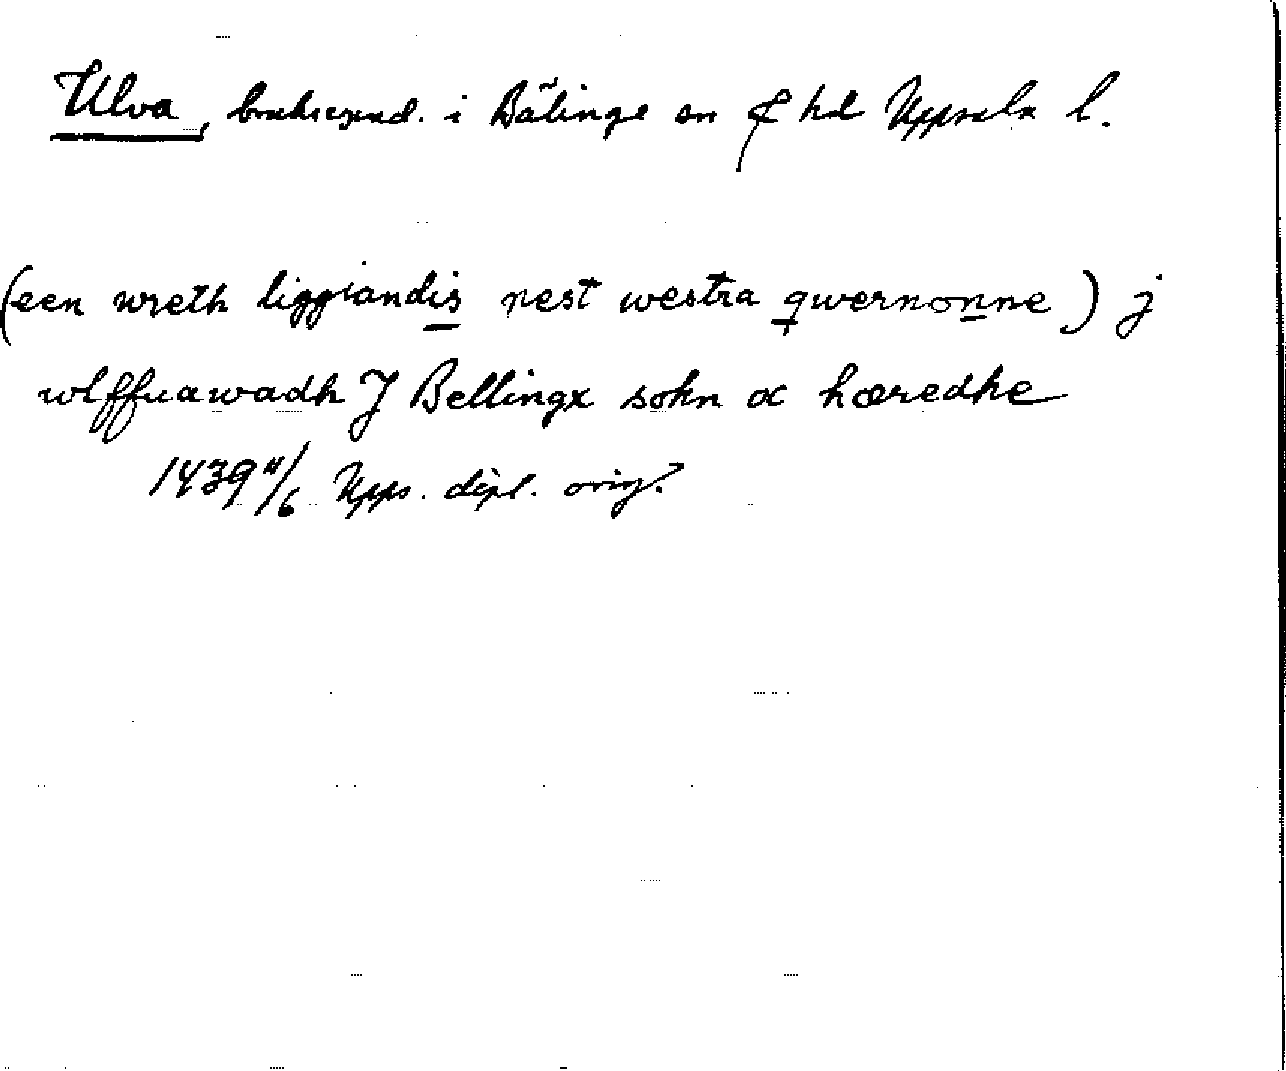 Ulva, bruksegend. i Bälinge sn & hd Uppsala l.
(een wreth liggiandis nest westra qwernonne) j
wlffuawadh J Bellingx sokn oc hæredhe
1439 11/6 Upps. dipl. orig.